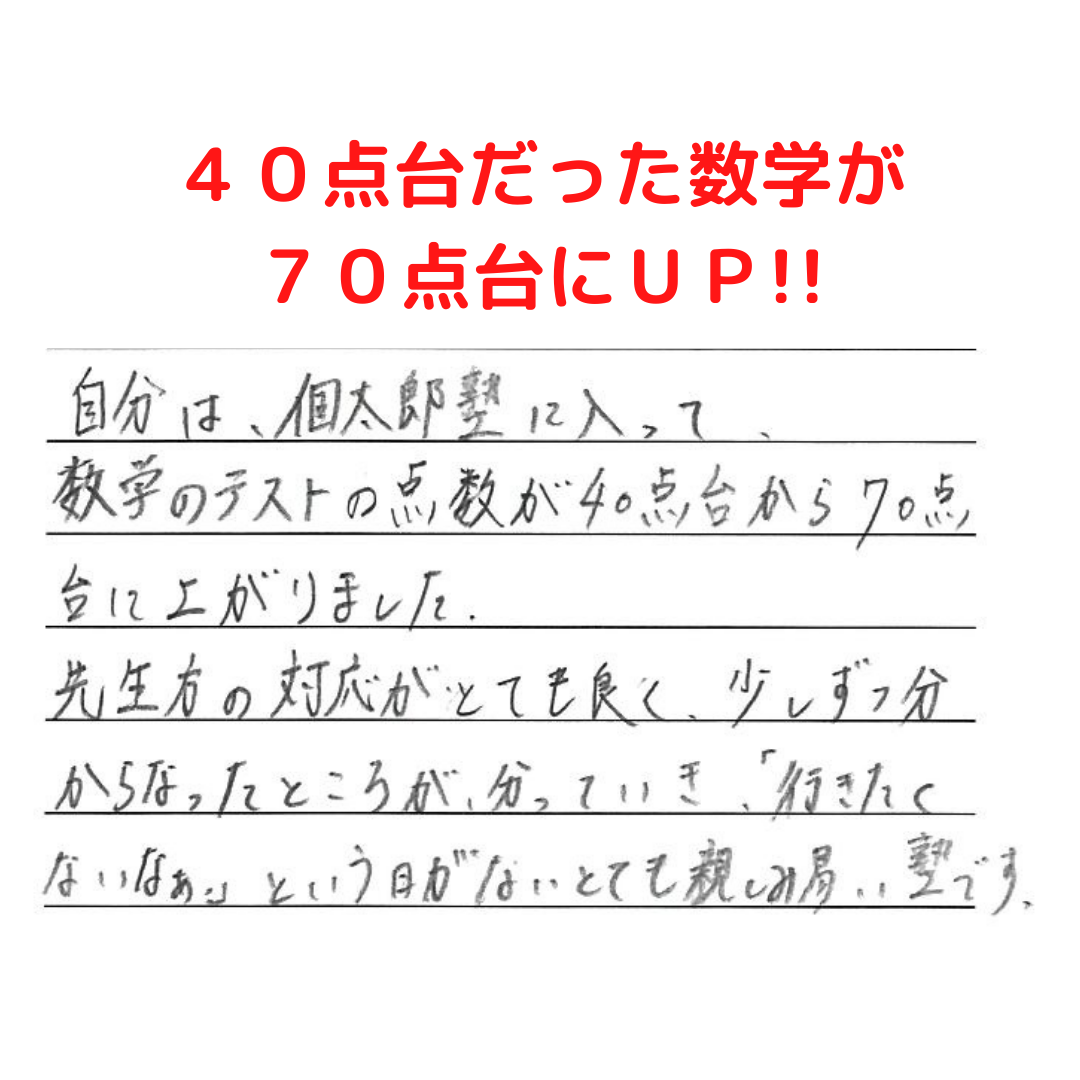 ４０点台だった数学が
７０点台にＵＰ!!
自分は、個太郎塾に入って、
数学のテストの点数が40点台から70点
台に上がりました.
先生方の対応がとても良く、少しずつ分
からなったところが、分っていき、「行きたく
ないなぁ。」という日がないとても親しみ易い塾です、